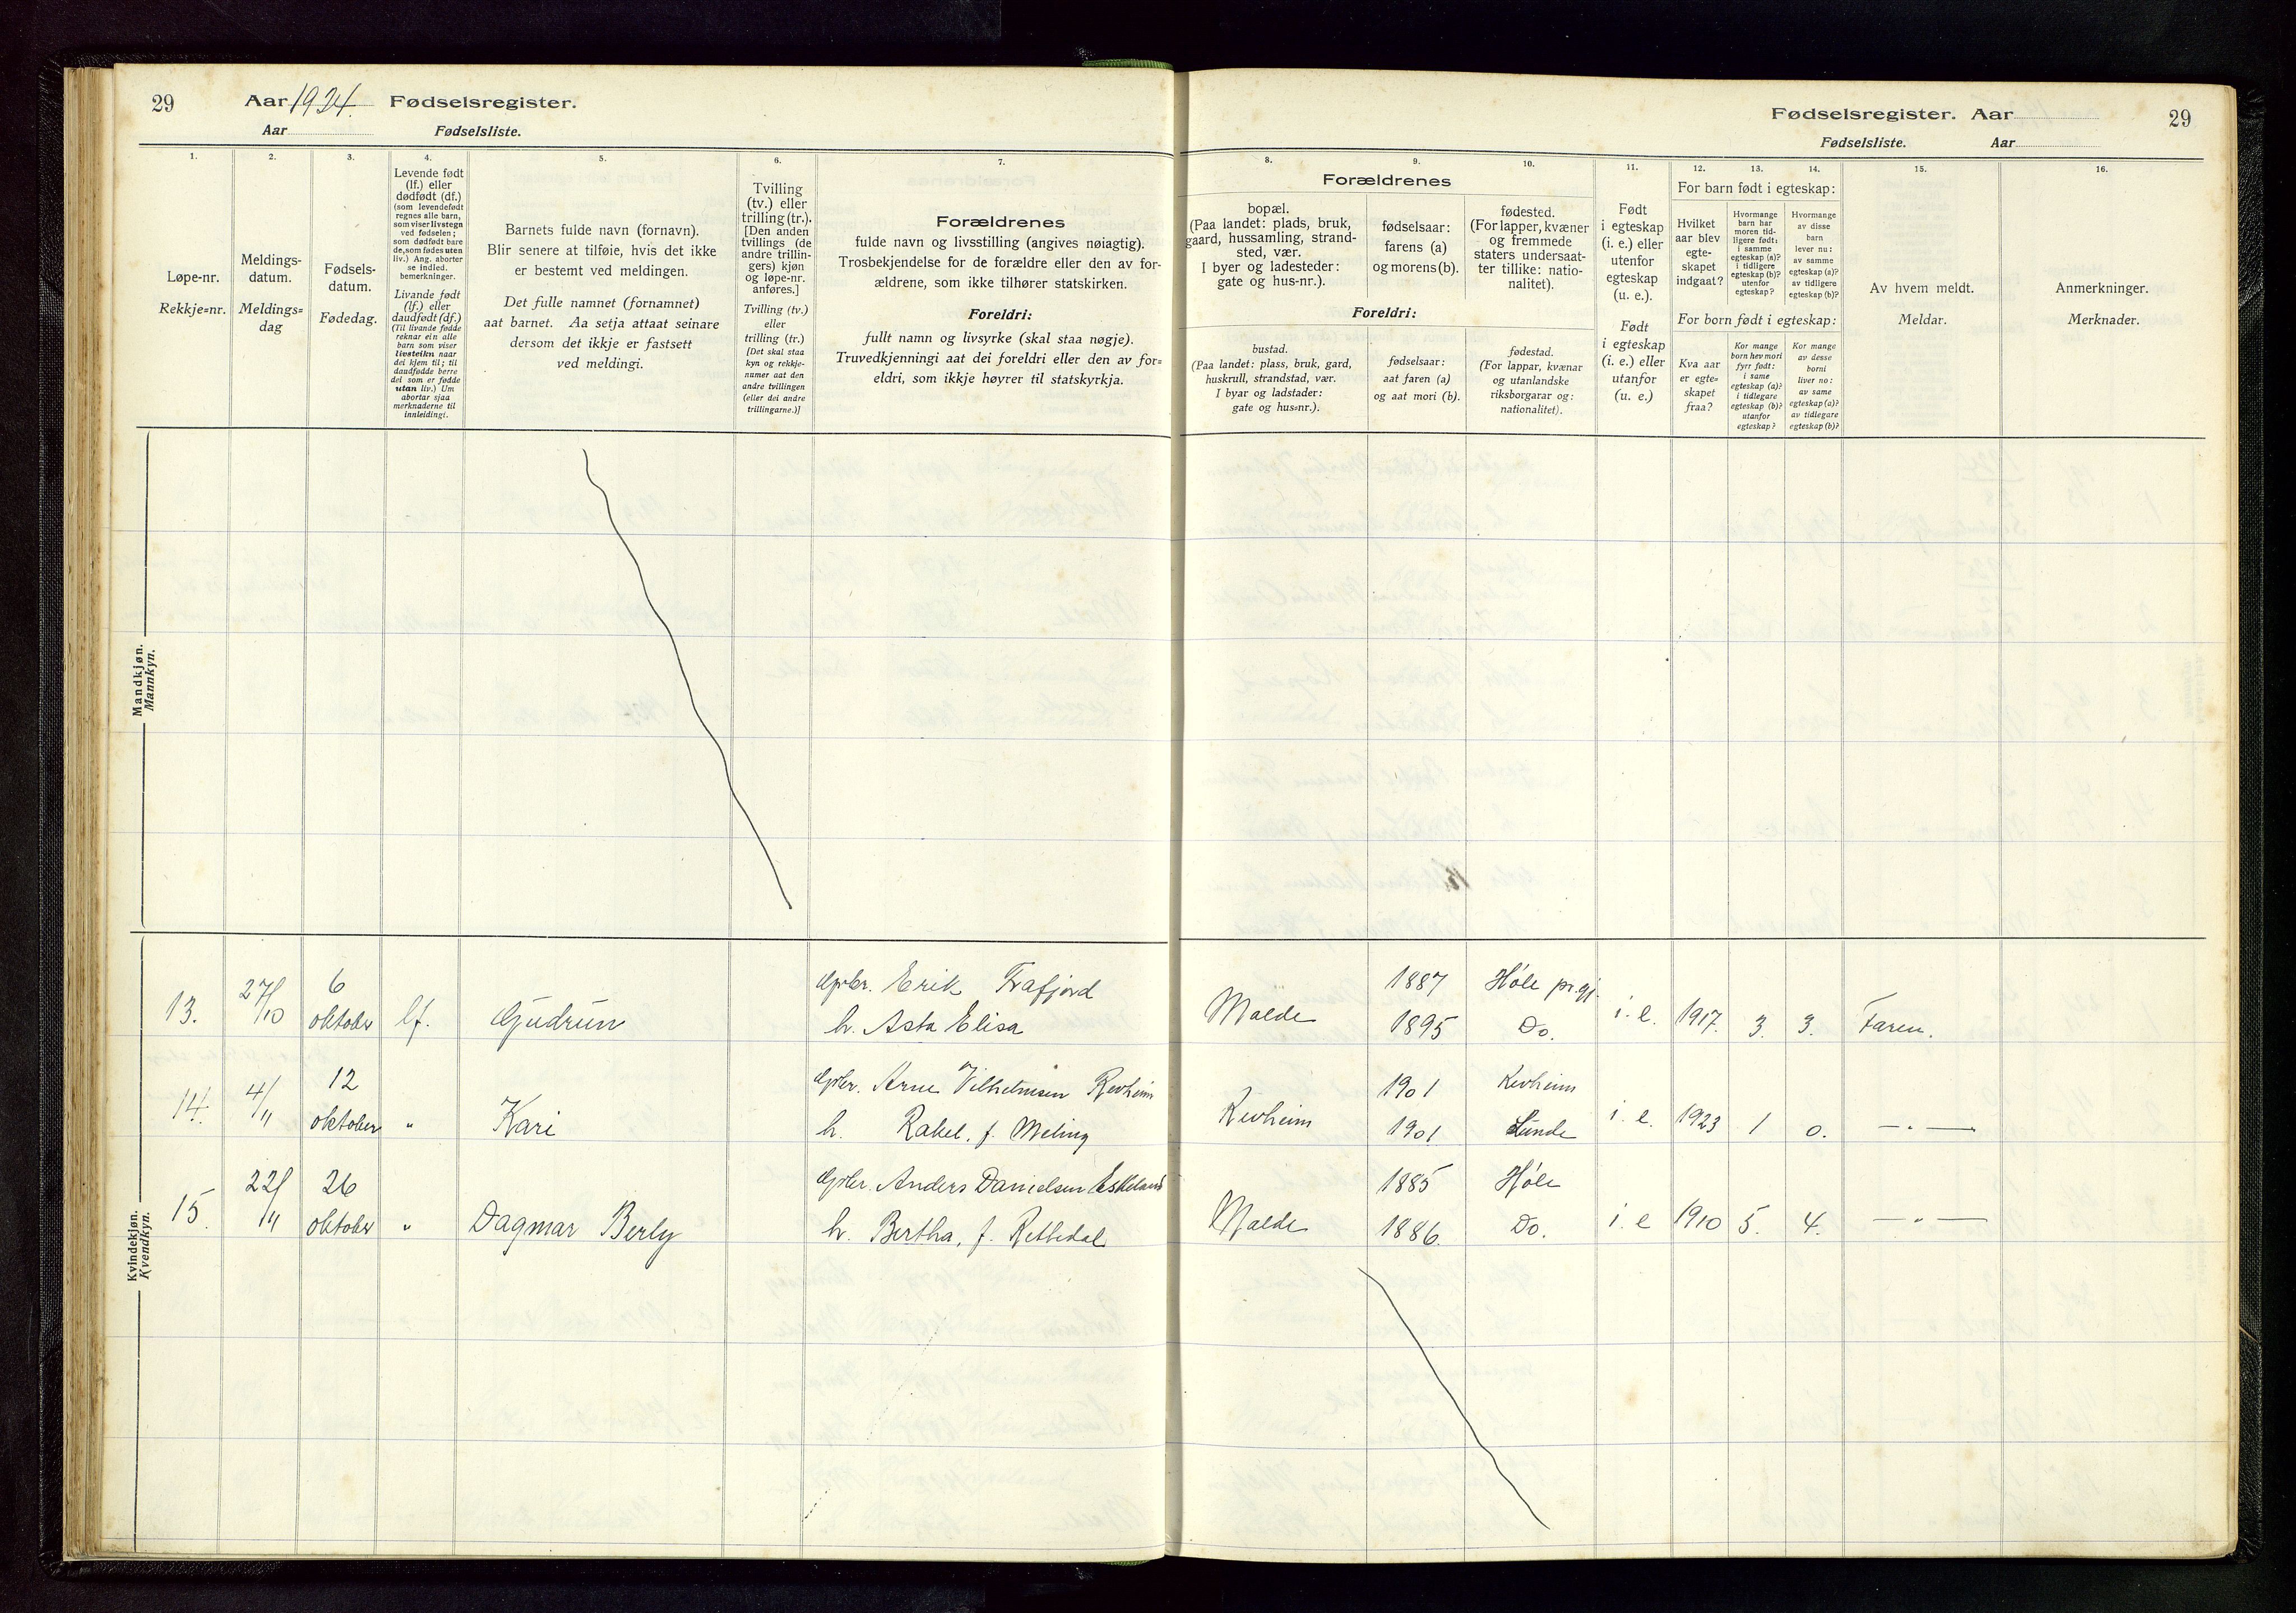 29 Aar 1924. Fødselsregister.
Aar Fødselsliste.
Fødselsregister. Aar 29
Fødselsliste. Aar
1. 2. 3. 4. 5. 6. 7.
Løpe-nr.
Rekkje-nr.
Meldings-
datum.
Meldings-
dag
Fødsels-
datum.
Fødedag.
Levende født
(lf.) eller
dødfødt (df.)
(som levendefødt
regnes alle barn,
som viser livstegn
ved fødselen;
som dødfødt bare
de, som fødes uten
liv.) Ang. aborter
se indled.
bemerkninger.
Livande født
(lf.) eller
daudfødt (df.)
(Til livande fødde
reknar ein alle
barn som viser
livsteikn naar
dei kjem til; til
daudfødde berre
dei som er fødde
utan liv.) Um
abortar sjaa
merknaderne til
innleidingi.
Barnets fulde navn (fornavn).
Blir senere at tilføie, hvis det ikke
er bestemt ved meldingen.
Det fulle namnet (fornamnet)
aat barnet. Aa setja attaat seinare
dersom det ikkje er fastsett
ved meldingi.
Tvilling
(tv.) eller
trilling (tr.).
[Den anden
tvillings (de
andre trillin-
gers) kjøn
og løpe-nr.
anføres.]
Tvilling (tv.)
eller
trilling (tr.)
[Det skal staa
kyn og rekkje-
numer aat den
andre tvillingen
(eller dei andre
trillingarne.)]
Forældrenes
fulde navn og livsstilling (angives nøiagtig).
Trosbekjendelse for de forældre eller den av for-
ældrene, som ikke tilhører statskirken.
Foreldri:
fullt namn og livsyrke (skal staa nøgje).
Truvedkjenningi aat dei foreldri eller den av for-
eldri, som ikkje høyrer til statskyrkja.
8. 9. 10. 11. 12. 13. 14. 15. 16.
Forældrenes
bopæl.
(Paa landet: plads, bruk,
gaard, hussamling, strand-
sted, vær.
I byer og ladesteder:
gate og hus-nr.).
fødselsaar:
farens (a)
og morens (b).
fødested.
(For lapper, kvæner
og fremmede
staters undersaat-
ter tillike: natio-
nalitet).
Foreldri:
bustad.
(Paa landet: plass, bruk, gard,
huskrull, strandstad, vær.
I byar og ladstader:
gate og hus-nr.).
fødselsaar:
aat faren (a)
og aat mori (b).
fødestad.
(For lappar, kvænar
og utanlandske
riksborgarar og:
nationalitet).
Født
i egteskap
(i. e.) eller
utenfor
egteskap
(u. e.).
Født
i egteskap
(i. e.) eller
utanfor
(u. e.)
For barn født i egteskap:
Hvilket
aar blev
egte-
skapet
indgaat?
Hvormange
barn har
moren tid-
ligere født:
i samme
egteskap (a)?
i tidligere
egteskap (b)?
utenfor
egteskap?
Hvormange
av disse
barn
lever nu:
av samme
egteskap (a)?
av tidligere
egteskap (b)?
For born født i egteskap:
Kva aar
er egte-
skapet
fraa?
Kor mange
born hev mori
fyrr født:
i same
egteskap (a)?
i tidlegare
egteskap (b)?
utanfor
egteskap?
Kor mange
av desse
borni
liver no:
av same
egteskap (a)?
av tidlegare
egteskap (b)?
Av hvem meldt.
Meldar.
Anmerkninger.
Merknader.
Mandkjøn.
Mannkyn.
Kvindekjøn.
Kvendkyn.
13. 27/10 6 oktober lf. Gudrun
Gpbr. Erik Frafjord
h. Asta Elisa
Malde 1887 Høle pr.gj.
1895 Do. i. e. 1917. 3. 3. Faren.
14. 4/11 12 oktober " Kari
Gpbr. Arne Vilhelmsen Revheim
h. Rakel, f. Meling
Revheim 1901 Revheim
1901 Sunde i. e. 1923 1 0. — " —
15. 22/11 26 oktober " Dagmar Berly
Gpbr. Anders Danielsen Eskeland
h. Bertha, f. Rettedal
Malde 1885 Høle
1886. Do. i. e 1910 5. 4. — " —